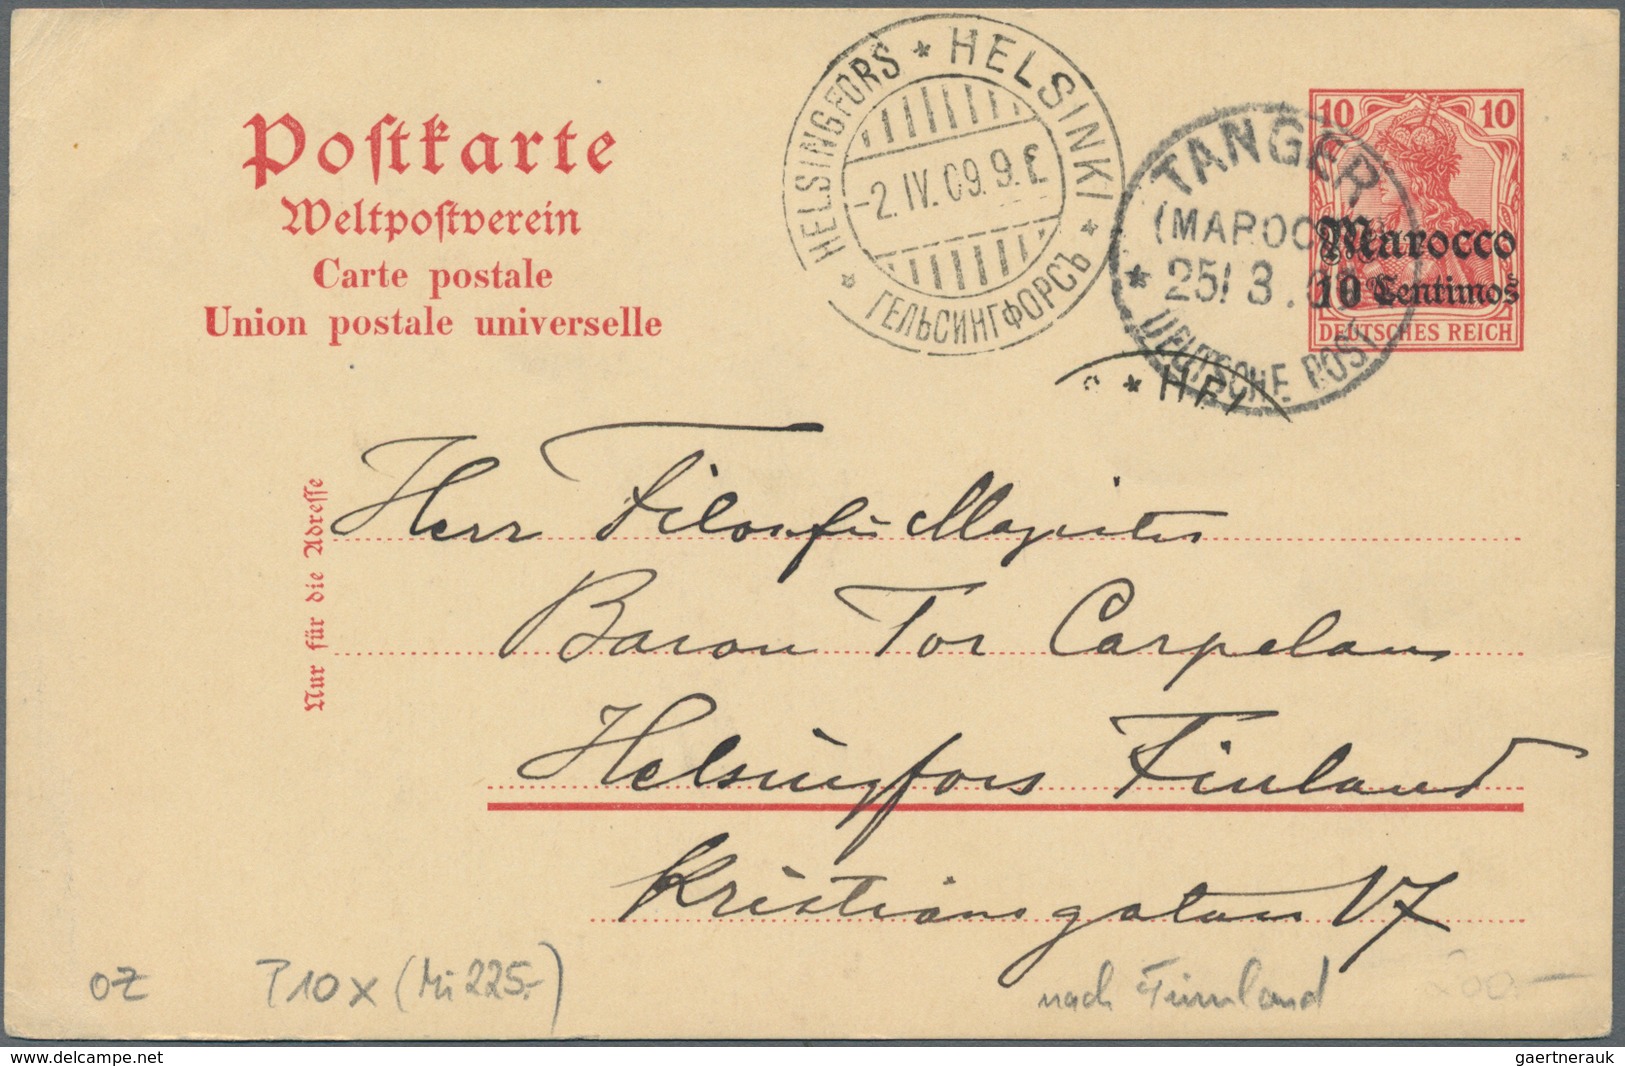 Postkarte
Weltpostverein
Carte postale
Union postale universelle
HELSINGFORS * HELSINKI * ГЕЛЬСИНГФОРСЪ *
-2.IV.09.9.E.
TANGER
(MAROCCO)
* 25/3.09 *
DEUTSCHE POST
10 10
Marocco
10 Centimos
DEUTSCHES REICH
* HEL
Nur für die Adresse
Herr Filosofie Magister
Baron Tor Carpelan
Helsingfors Finland
Kristiansgatan 17
OZ P10x (Mi 225.-) nach Finnland 200.-
delcampe.net
gaertnerauk